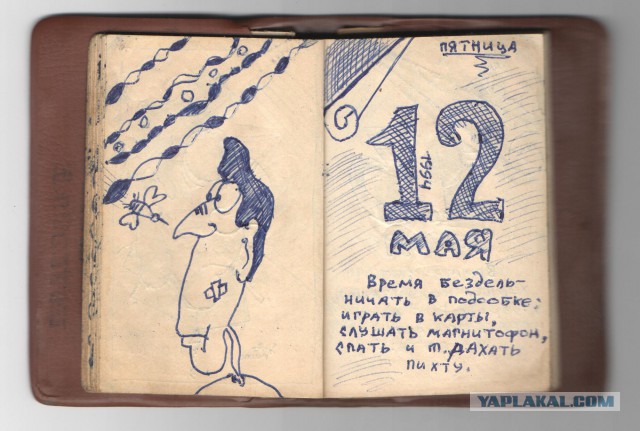 ПЯТНИЦА
12
1994
МАЯ
Время бездель-
ничать в подсобке:
играть в карты,
слушать магнитофон,
спать и т.дАХАТЬ
пихту.
YAPLAKAL.COM